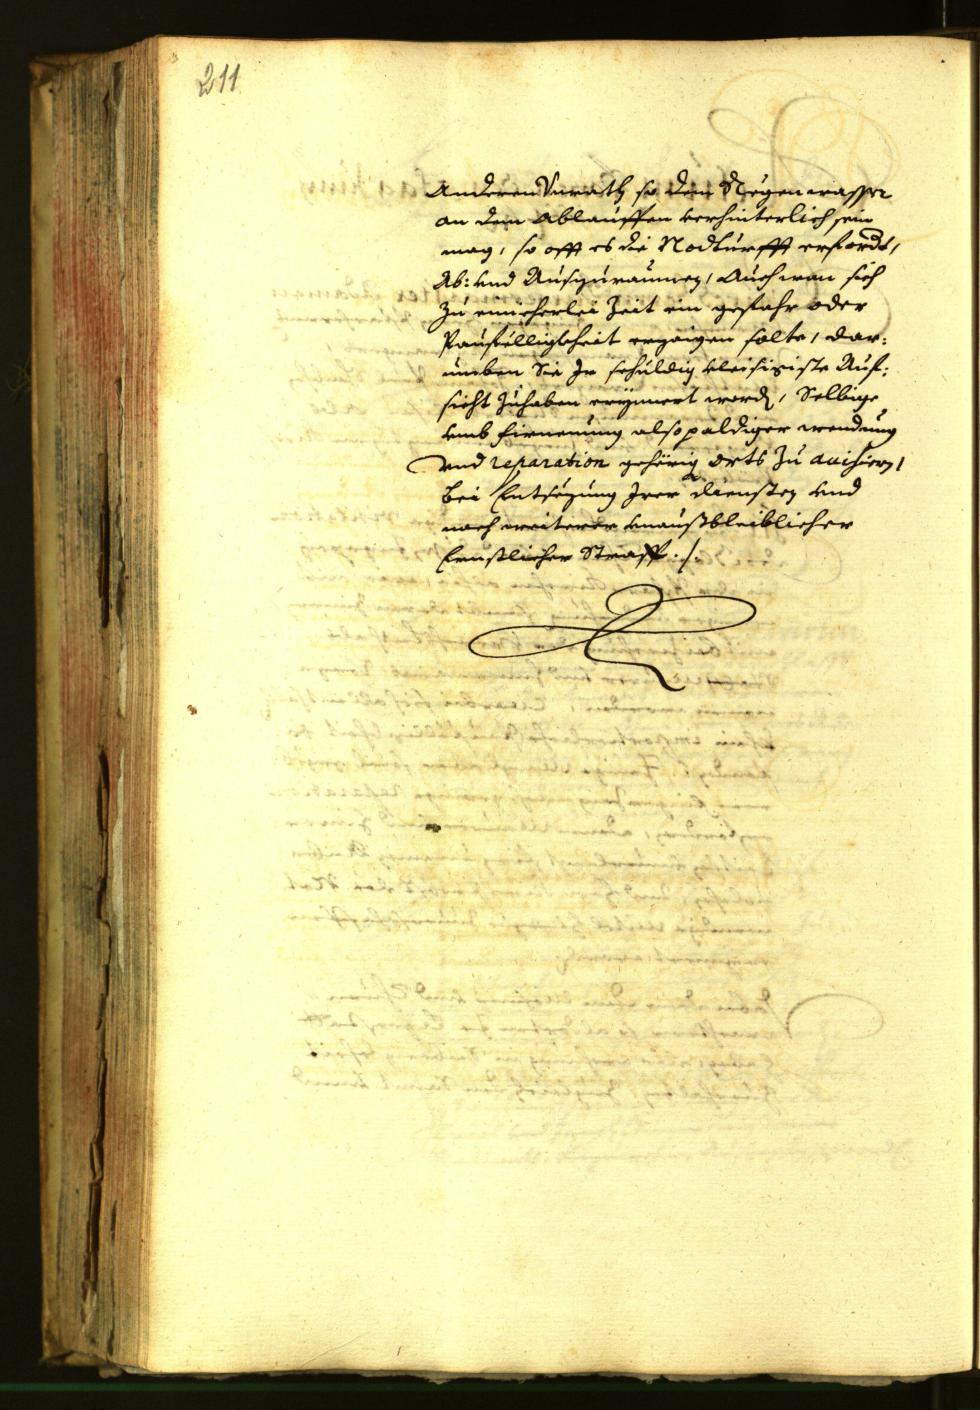 211
Anderen Vnrath so dem Regenwasser
an dem Ablauffen verhinterlich sein
mag, so offt es die Nodturfft erfordt,
Ab: vnd Auszuraumen, Auch wan sich
Zu einicherlei Zeit ein gefahr oder
Paufelligkheit erzaigen solte, dar:
umben Sie Ir schuldig vleisigiste Auf:
sicht Zuhaben erynnert word, Selbige
vmb firnemung alsopaldiger wendung
vnd reparation gehörig orts Zu avisiern,
Bei Entsezung Irer diensten vnd
noch weiterer vnaußbleiblicher
Ernstlicher Straff ./.